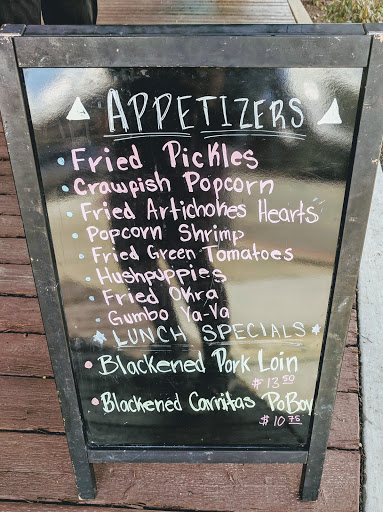 APPETIZERS
• Fried Pickles
• Crawfish Popcorn
• Fried Artichokes Hearts
• Popcorn Shrimp
• Fried Green Tomatoes
• Hushpuppies
• Fried Okra
• Gumbo Ya-Ya
LUNCH SPECIALS
• Blackened Pork Loin
$13.50
• Blackened Carnitas PoBoy
$10.75